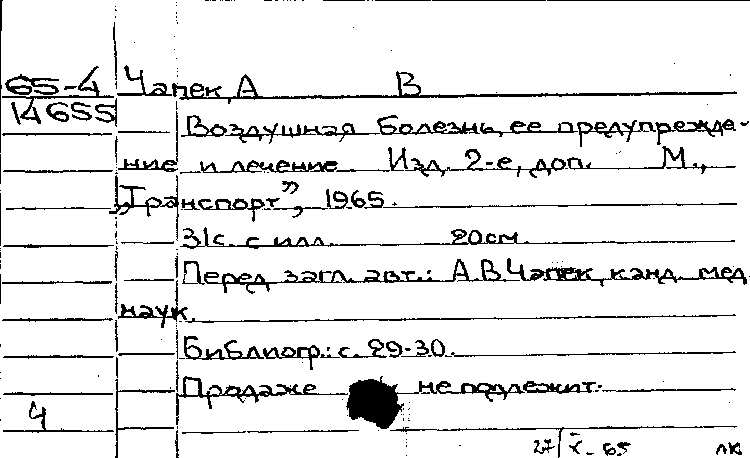 65-4 Чапек, А В
14655
Воздушная болезнь, ее предупрежде-
ние и лечение. Изд. 2-е, доп. М.,
„Транспорт”, 1965.
31с. с илл. 20см.
Перед загл. авт.: А.В.Чапек, канд. мед.
наук.
Библиогр.: с. 29-30.
Продаже не подлежит.
4
27/X-65 лк